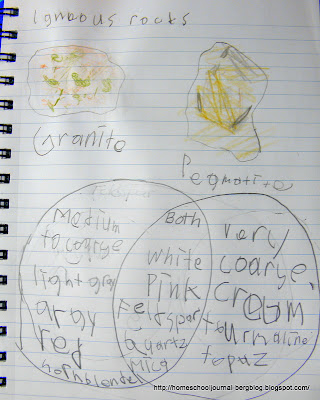 Igneous rocks
Granite
Pegmatite
Both
Medium
to coarge
light gray
gray
red
hornblende
white
pink
Feldspar
quartz
Mica
very
coarge
cream
tourmaline
topaz
http://homeschooljournal-bergblog.blogspot.com/